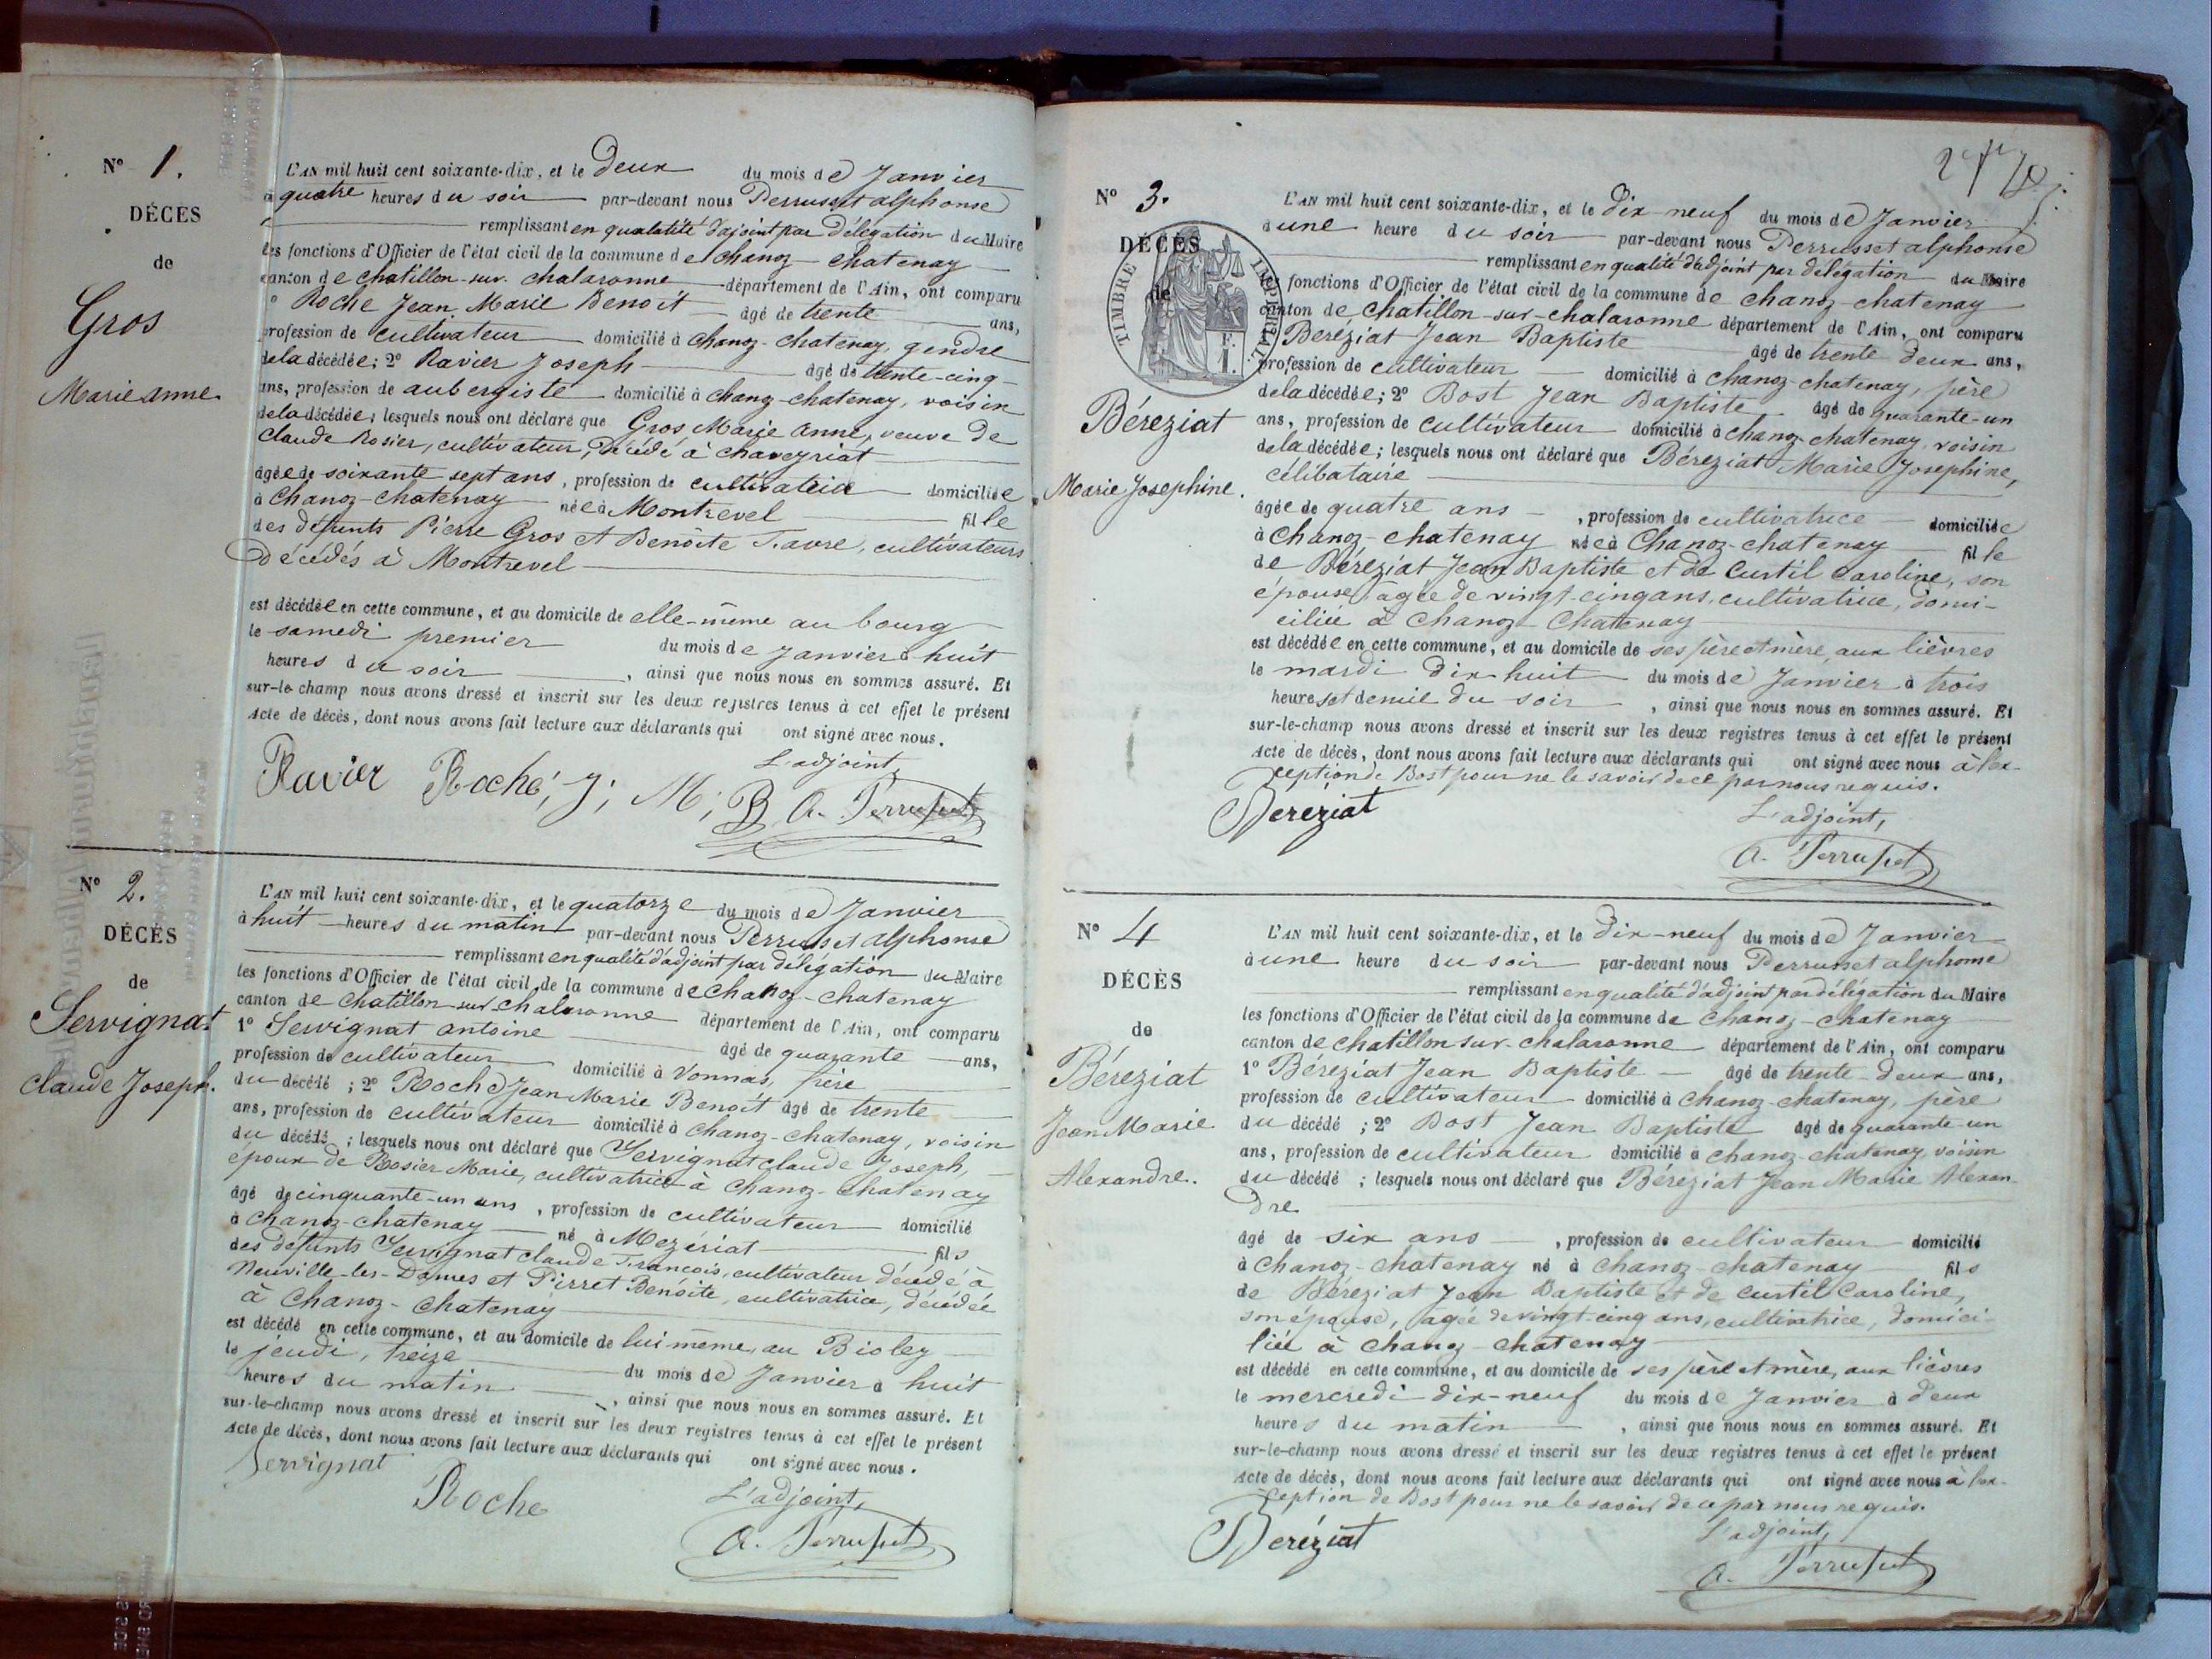 N° 1.
DÉCÈS
de
Gros
Marie Anne
L'AN mil huit cent soixante-dix, et le Deux du mois de Janvier
à quatre heures du soir par-devant nous Perrusset alphonse
remplissant en qualatité d'ajoint par Délégation du Maire
les fonctions d'Officier de l'état civil de la commune de Chanoz-Chatenay
canton de Chatillon-sur-chalaronne département de l'Ain, ont comparu
1° Roche Jean Marie Benoit âgé de trente ans,
profession de cultivateur domicilié à Chanoz-chatenay, gendre
de la décédée; 2° Ravier Joseph âgé de trente-cinq
ans, profession de aubergiste domicilié à chanoz-chatenay, voisin
de la décédée; lesquels nous ont déclaré que Gros Marie Anne, veuve de
Claude Rosier, cultivateur, Décédé à chaveyriat
âgée de soixante sept ans, profession de cultivatrice domiciliée
à Chanoz-chatenay née à Montrevel fille
des défunts Pierre Gros et Benoîte Favre, cultivateurs
Décédés à Montrevel
est décédée en cette commune, et au domicile de elle-même au bourg
le samedi premier du mois de Janvier à huit
heures du soir, ainsi que nous nous en sommes assuré. Et
sur-le-champ nous avons dressé et inscrit sur les deux registres tenus à cet effet le présent
Acte de décès, dont nous avons fait lecture aux déclarants qui ont signé avec nous.
L'adjoint,
Ravier Roche, J; M; B A. Perrusset
N° 2.
DÉCÈS
de
Servignat
Claude Joseph.
L'AN mil huit cent soixante-dix, et le quatorze du mois de Janvier
à huit heures du matin par-devant nous Perrusset alphonse
remplissant en qualité d'adjoint par délégation du Maire
les fonctions d'Officier de l'état civil de la commune de Chanoz-chatenay
canton de Chatillon-sur-chalaronne département de l'Ain, ont comparu
1° Servignat antoine âgé de quarante ans,
profession de cultivateur domicilié à Vonnas, frère
du décédé ; 2° Roche Jean Marie Benoît âgé de trente
ans, profession de cultivateur domicilié à Chanoz-chatenay, voisin
du décédé ; lesquels nous ont déclaré que Servignat claude Joseph,
époux de Rosier Marie, cultivatrice à Chanoz-Chatenay
âgé de cinquante-un ans, profession de cultivateur domicilié
à Chanoz-chatenay né à Mezériat fils
des défunts Servignat claude François, cultivateur décédé à
Neuville-les-Dames et Pirret Benoîte, cultivatrice, décédée
à Chanoz-Chatenay
est décédé en cette commune, et au domicile de lui même, au Bioley
le jeudi, treize du mois de Janvier à huit
heures du matin, ainsi que nous nous en sommes assuré. Et
sur-le-champ nous avons dressé et inscrit sur les deux registres tenus à cet effet le présent
Acte de décès, dont nous avons fait lecture aux déclarants qui ont signé avec nous.
Servignat
Roche
L'adjoint,
A. Perrusset
N° 3.
TIMBRE IMPÉRIAL
DÉCÈS
de
Béreziat
Marie Josephine.
L'AN mil huit cent soixante-dix, et le Dix-neuf du mois de Janvier
à une heure du soir par-devant nous Perrusset alphonse
remplissant en qualité d'adjoint par délégation du Maire
les fonctions d'Officier de l'état civil de la commune de Chanoz-chatenay
canton de Chatillon-sur-chalaronne département de l'Ain, ont comparu
1° Béreziat Jean Baptiste âgé de trente deux ans,
profession de cultivateur domicilié à Chanoz-chatenay, père
de la décédée; 2° Bost Jean Baptiste âgé de quarante-un
ans, profession de cultivateur domicilié à chanoz-chatenay, voisin
de la décédée; lesquels nous ont déclaré que Béreziat Marie Josephine,
célibataire
âgée de quatre ans, profession de cultivatrice domiciliée
à Chanoz-chatenay née à Chanoz-chatenay fille
de Béreziat Jean Baptiste et de Curtil Caroline, son
épouse, âgée de vingt-cinq ans, cultivatrice, domi-
ciliée à Chanoz-Chatenay
est décédée en cette commune, et au domicile de ses père et mère, aux lièvres
le mardi Dix huit du mois de Janvier à trois
heures et demie du soir, ainsi que nous nous en sommes assuré. Et
sur-le-champ nous avons dressé et inscrit sur les deux registres tenus à cet effet le présent
Acte de décès, dont nous avons fait lecture aux déclarants qui ont signé avec nous à l'ex-
ception de Bost pour ne le savoir de ce par nous requis.
Béréziat
L'adjoint,
A. Perrusset
N° 4
DÉCÈS
de
Béreziat
Jean Marie
Alexandre.
L'AN mil huit cent soixante-dix, et le Dix-neuf du mois de Janvier
à une heure du soir par-devant nous Perrusset alphonse
remplissant en qualité d'adjoint par délégation du Maire
les fonctions d'Officier de l'état civil de la commune de Chanoz-chatenay
canton de Chatillon sur-chalaronne département de l'Ain, ont comparu
1° Béreziat Jean Baptiste âgé de trente-deux ans,
profession de cultivateur domicilié à Chanoz-chatenay, père
du décédé ; 2° Bost Jean Baptiste âgé de quarante-un
ans, profession de cultivateur domicilié à chanoz-chatenay, voisin
du décédé ; lesquels nous ont déclaré que Béreziat Jean Marie Alexan-
dre
âgé de six ans, profession de cultivateur domicilié
à Chanoz-chatenay né à Chanoz-chatenay fils
de Béreziat Jean Baptiste et de Curtil Caroline,
son épouse, âgée de vingt-cinq ans, cultivatrice, domici-
liée à Chanoz-chatenay
est décédé en cette commune, et au domicile de ses père et mère, aux lièvres
le mercredi dix-neuf du mois de Janvier à deux
heures du matin, ainsi que nous nous en sommes assuré. Et
sur-le-champ nous avons dressé et inscrit sur les deux registres tenus à cet effet le présent
Acte de décès, dont nous avons fait lecture aux déclarants qui ont signé avec nous à l'ex-
ception de Bost pour ne le savoir de ce par nous requis.
Béréziat
L'adjoint,
A. Perrusset